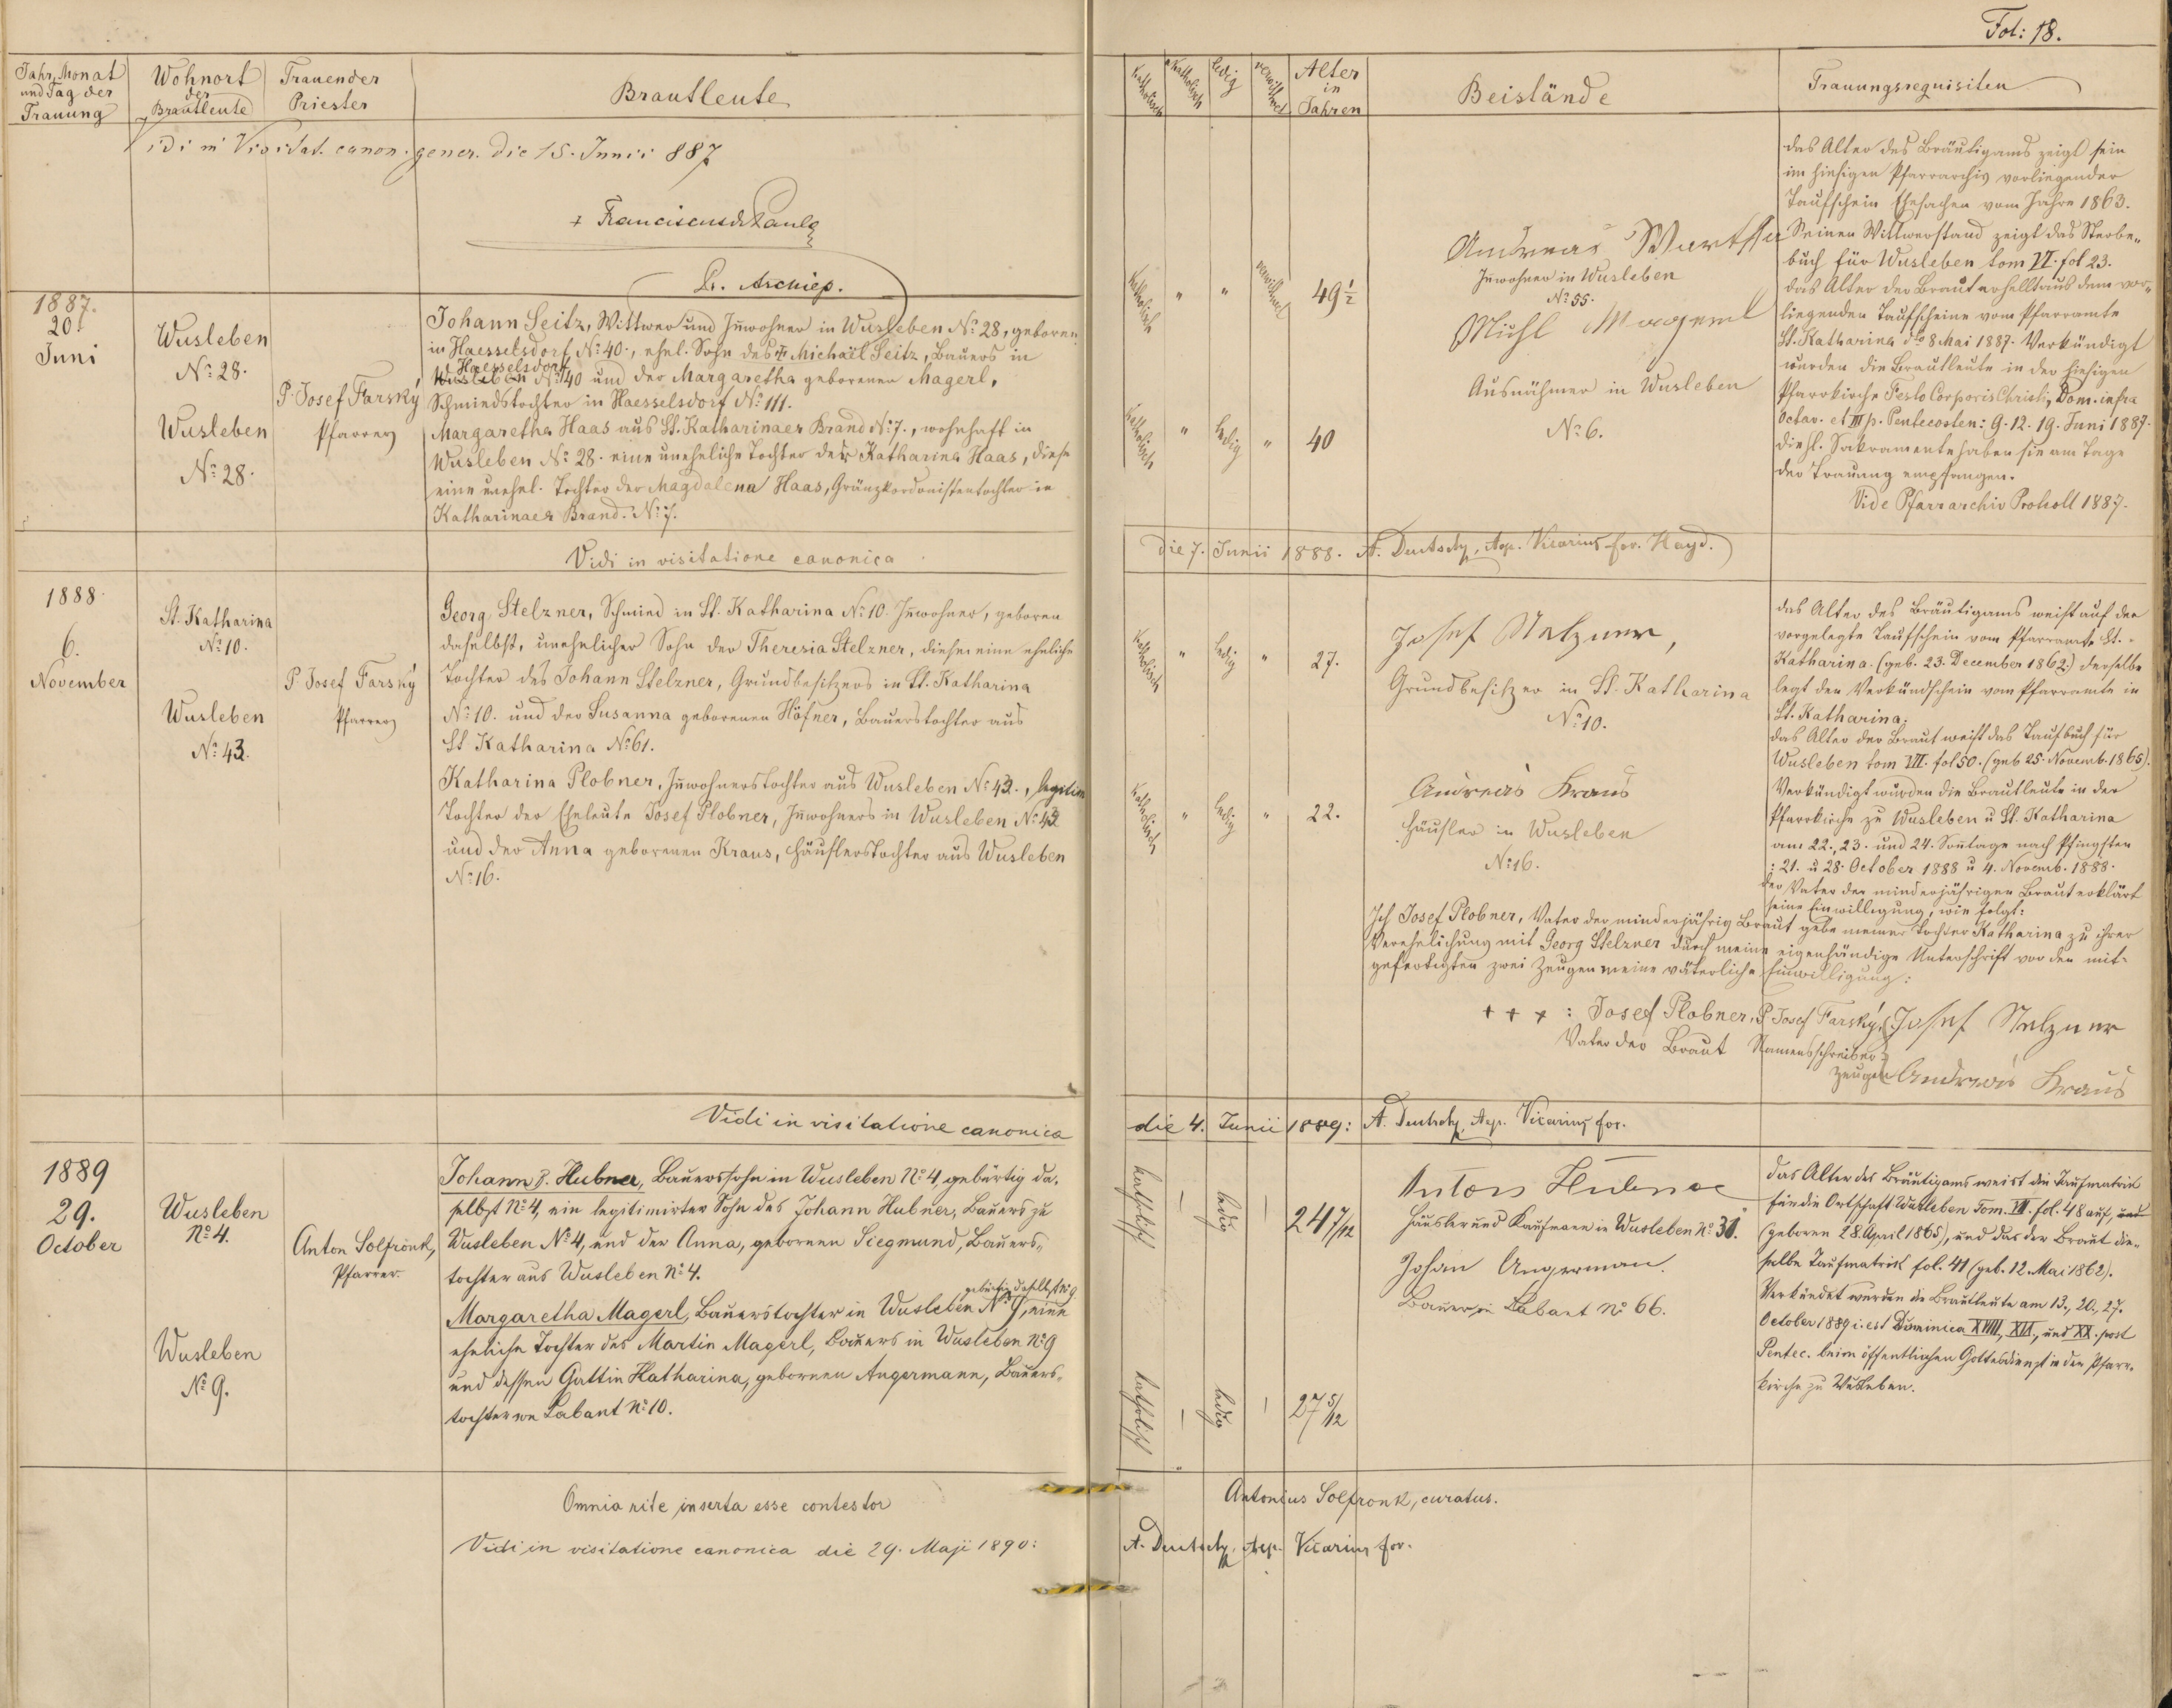 Fol: 18.
Jahr, Monat
und Tag der
Trauung
Wohnort
der
Brautleute
Trauender
Priester
Brautleute
Katholisch
Akatholisch
ledig
verwittwet
Alter
in
Jahren
Beistände
Trauungsrequisiten
idi in Visitat. canon. gener. die 15. Junii 887
+ Franciscus de Paula
Pr. Archiep.
1887.
20.
Juni
Wusleben
No: 28.
Wusleben
No: 28.
P. Josef Farský
Pfarrer
Johann Seitz, Wittwer und Inwohner in Wusleben No: 28, geboren
in Haesselsdorf No: 40., ehel. Sohn des Michaël Seitz, Bauers in
Haesselsdorf
Wusleben No: 40 und der Margaretha geborenen Magerl,
Schmiedstochter in Haesselsdorf No: 111.
Margaretha Haas aus St. Katharinaer Brand No: 7., wohnhaft in
Wusleben No: 28. eine uneheliche Tochter der Katharina Haas, diese
eine unehel. Tochter der Magdalena Haas, Gränzkordonistentochter in
Katharinaer Brand. No: 7.
katholisch " " verwittwet 49 1/2
katholisch " ledig " 40
Andreas
Inwohner in Wusleben
No: 55.
Michl Magerl
Ausnähmer in Wusleben
No: 6.
das Alter des Bräutigams zeigt sein
im hiesigen Pfarrarchiv vorliegender
Taufschein Ehesachen vom Jahre 1863.
Seinen Wittwerstand zeigt das Sterbe„
buch für Wusleben tom VI. fol 23.
das Alter der Braut erhellt aus dem vor„
liegenden Taufscheine vom Pfarramte
St. Katharina dto 8 Mai 1887. Verkündigt
wurden die Brautleute in der hiesigen
Pfarrkirche Festo Corporis Christi, Dom. infra
Octav. et III p. Pentecosten: 9. 12. 19. Juni 1887.
die hl. Sakramente haben sie am Tage
der Trauung empfangen.
Vide Pfarrarchiv 1887.
Vidi in visitatione canonica
die 7. Junii 1888. A. Deutsch, Aep. Vicarius for. Hayd.
1888.
6.
November
St. Katharina
No: 10.
Wusleben
No: 43.
P Josef Farský
Pfarrer
Georg Stelzner, Schmied in St. Katharina No: 10 Inwohner, geboren
daselbst, unehelicher Sohn der Theresia Stelzner, diese eine eheliche
Tochter des Johann Stelzner, Grundbesitzers in St. Katharina
No: 10. und der Susanna geborenen Höfner, Bauerstochter aus
St Katharina No: 61.
Katharina Plobner, Inwohnerstochter aus Wusleben No: 43., legitim
Tochter der Eheleute Josef Plobner, Inwohners in Wusleben No: 43
und der Anna geborenen Kraus, Häuslerstochter aus Wusleben
No: 16.
katholisch " ledig " 27.
katholisch " ledig " 22.
Josef Stelzner,
Grundbesitzer in St. Katharina
No: 10.
Andreas Kraus
Häusler in Wusleben
No: 16.
das Alter des Bräutigams weist auf der
vorgelegte Taufschein vom Pfarramte St.
Katharina. (geb. 23. December 1862.) derselbe
legt den Verkündschein vom Pfarramte in
St. Katharina.
das Alter der Braut weist das Taufbuch für
Wusleben tom VII. fol 50. (geb 25. Novemb. 1865).
Verkündigt wurden die Brautleute in der
Pfarrkirche zu Wusleben u St. Katharina
am 22., 23. und 24. Sonntage nach Pfingsten
: 21. u 28. October 1888 u 4. Novemb. 1888.
der Vater der minderjährigen Braut erklärt
seine Einwilligung, wie folgt:
Ich Josef Plobner, Vater der minderjährig Braut gebe meiner Tochter Katharina zu ihrer
Verehelichung mit Georg Stelzner durch meine eigenhändige Unterschrift vor den mit-
gefertigten zwei Zeugen meine väterliche Einwilligung:
+ + + : Josef Plobner, P Josef Farský, Josef Stelzner
Vater der Braut Namensschreiber.
Zeugen Andreas Kraus
Vidi in visitatione canonica
die 4. Junii 1889: A. Deutsch, Aep. Vicarius for.
1889
29.
October
Wusleben
No: 4.
Wusleben
No: 9.
Anton Solfronk,
Pfarrer.
Johann B. Hubner, Bauerssohn in Wusleben No: 4, gebürtig da„
selbst No: 4, ein legitimirter Sohn des Johann Hubner, Bauers zu
Wusleben No: 4, und der Anna, gebornen Siegmund, Bauers„
tochter aus Wusleben No: 4.
gebürtig daselbst No 9
Margaretha Magerl, Bauerstochter in Wusleben No: 9, eine
eheliche Tochter des Martin Magerl, Bauers in Wusleben No: 9
und dessen Gattin Katharina, gebornen Angermann, Bauers„
tochter von Labant No: 10.
katholisch – ledig – 24 7/12
katholisch – ledig – 27 5/12
Anton Hubner
Häusler und Kaufmann in Wusleben No: 31.
Johan Angerman.
Bauer in Labant No 66.
das Alter des Bräutigams weist die Taufmatrik
für die Ortschaft Wusleben Tom. VII. fol. 48 auf, und
(geboren 28. April 1865), und das der Braut die„
selbe Taufmatrik fol. 41 (geb. 12. Mai 1862).
Verkündet wurden die Brautleute am 13., 20., 27.
October 1889 i. est Dominica XVIII, XIX, und XX. post
Pentec. beim öffentlichen Gottesdienste in der Pfarr„
kirche zu Wusleben.
Omnia rite inserta esse contestor
Antonius Solfronk, curatus.
Vidi in visitatione canonica die 29. Maji 1890:
A. Deutsch, Aep. Vicarius for.